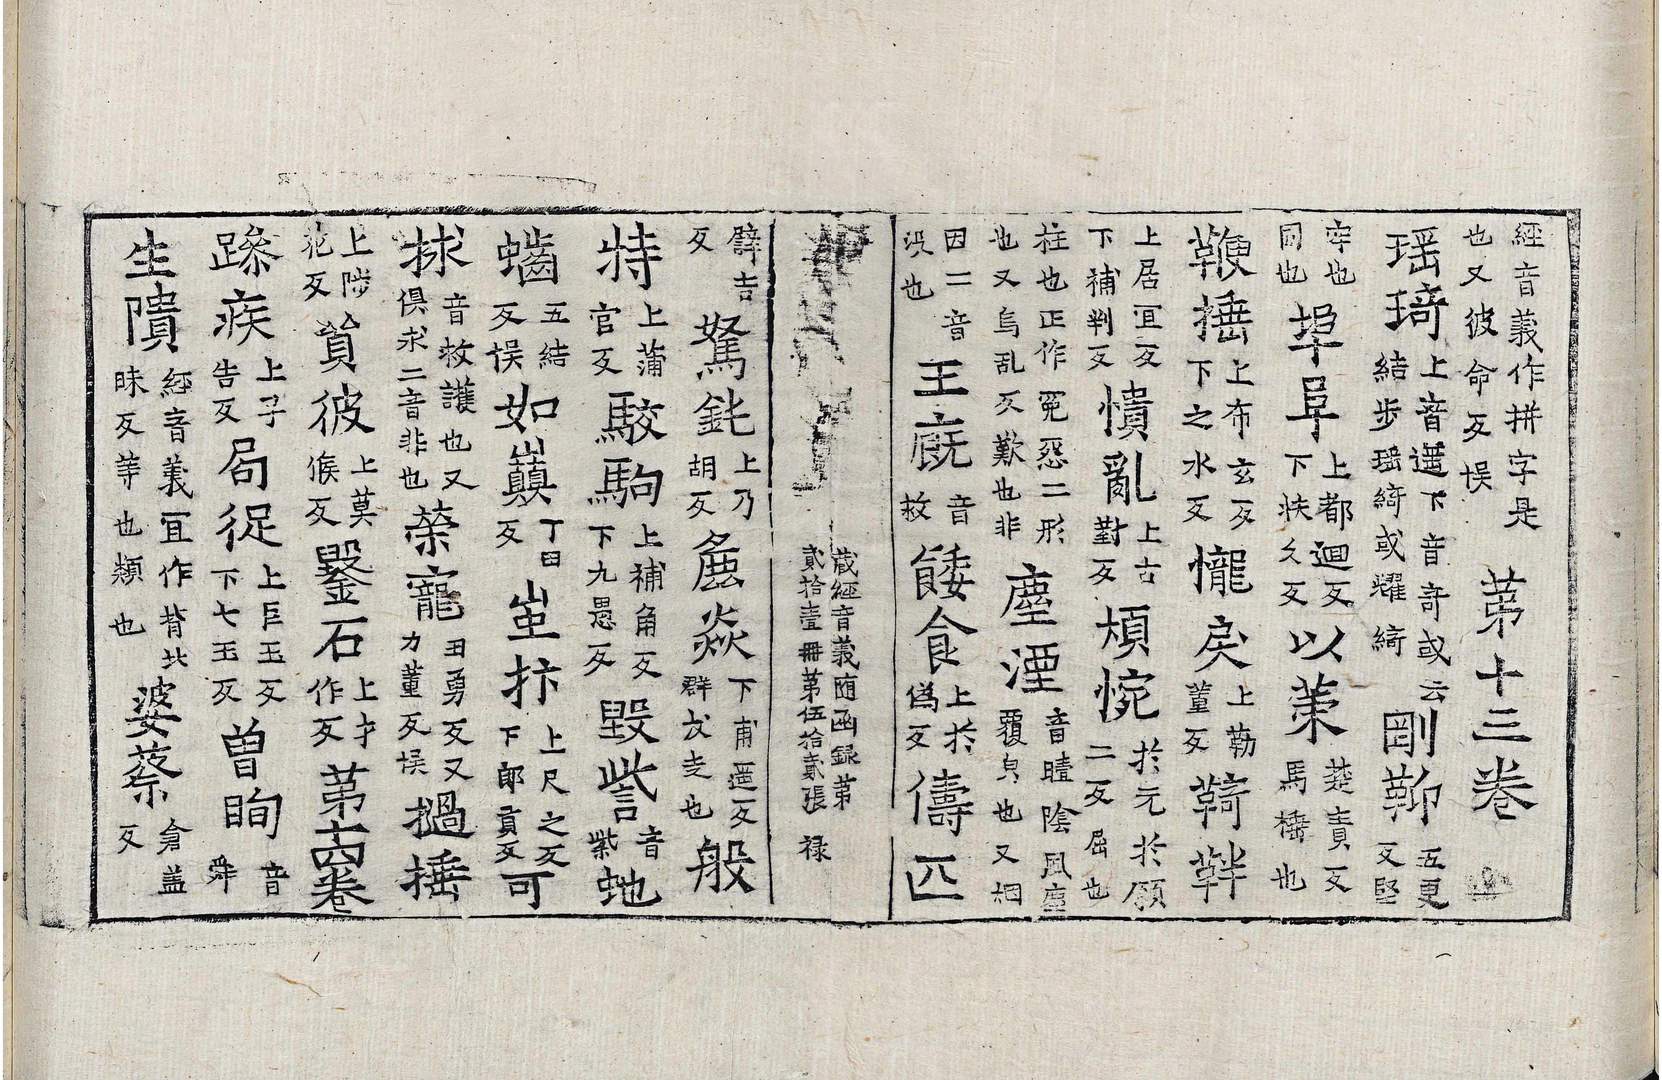 經音義作拼字是
也又彼命反悞
第十三卷
瑶琦
上音遥下音奇或云
結步瑶綺或耀綺
剛䩕
五更
反堅
牢也
同也
埠阜
上都迴反
下扶久反
以䇿
楚責反
馬棰也
鞭捶
上布玄反
下之水反
㦬戾
上勒
董反
䩭靽
上居宜反
下補判反
憒亂
上古
對反
煩惋
於元於願
二反屈也
枉也正作冤惌二形
也又烏乱反歎也非
塵湮
音瞖陰風塵
覆皃也又烟
因二音
没也
王廐
音
救
餧食
上於
偽反
儔匹
蔵經音義随函録第
貳拾壹冊第伍拾貳張 禄
譬吉
反
駑鈍
上乃
胡反
麁焱
下甫遥反
群犮走也
般
特
上蒲
官反
駮駒
上補角反
下九愚反
毀呰
音
紫
虵
蠨
五結
反悞
如巔
丁田
反
蚩抃
上尺之反
下郎貢反
可
捄
音救護也又
俱求二音非也
榮寵
丑勇反又
力董反悞
撾捶
上陟
花反
貿彼
上莫
候反
鑿石
上才
作反
第十四卷
躁疾
上子
告反
局促
上巨玉反
下七玉反
曽眴
音
舜
生隤
經音義冝作背北
昧反等也類也
婆蔡
倉盖
反